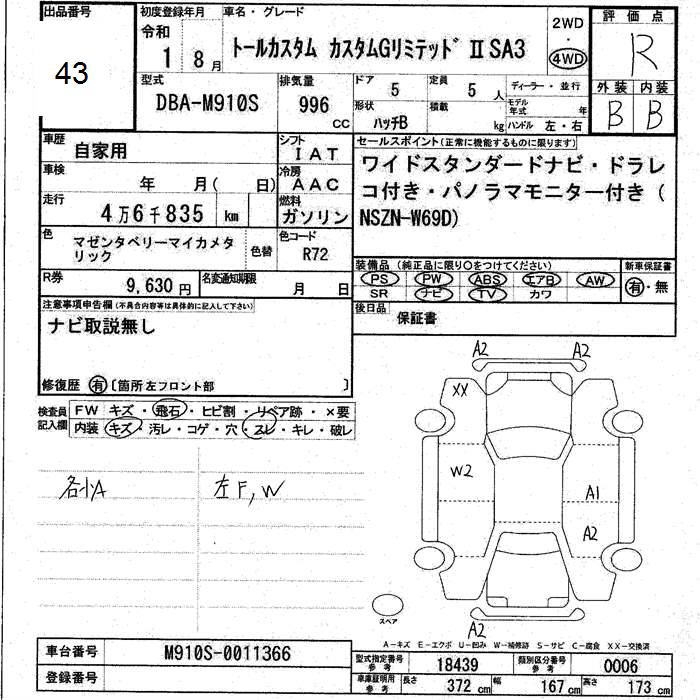 出品番号
43
初度登録年月
令和
1 8月
車名・グレード
トールカスタム カスタムGリミテッド Ⅱ SA3
2WD
・
4WD
評価点
R
外装 内装
B B
型式
DBA-M910S
排気量
996
CC
ドア
5
定員
5人
形状
ハッチB
積載
kg
ディーラー・並行
モデル年式 年
ハンドル 左・右
車歴
自家用
シフト
IAT
車検
年 月( 日)
冷房
AAC
走行
4万6千835 km
燃料
ガソリン
色
マゼンタベリーマイカメタ
リック
色替
色コード
R72
R券
9,630円
名変通知期限
月 日
セールスポイント(正常に機能するものに限ります)
ワイドスタンダードナビ・ドラレ
コ付き・パノラマモニター付き(
NSZN-W69D)
装備品(純正品に限り○をつけてください)
PS PW ABS エアB AW
SR ナビ TV カワ
新車保証書
有・無
後日品
保証書
注意事項申告欄(不具合内容等は具体的に記入して下さい)
ナビ取説無し
修復歴 有〔箇所 左フロント部 〕
検査員
記入欄
FW キズ・飛石・ヒビ割・リペア跡・×要
内装 キズ・汚レ・コゲ・穴・スレ・キレ・破レ
各小A
左F,W
A2 A2
XX
W2
A1
A2
A2
スペア
A-キズ E-エクボ U-凹み W-補修跡 S-サビ C-腐食 XX-交換済
車台番号
M910S-0011366
登録番号
型式指定番号
参考
18439
類別区分番号
参考
0006
車庫証明用
参考
長さ 372 cm 幅 167 cm 高さ 173 cm